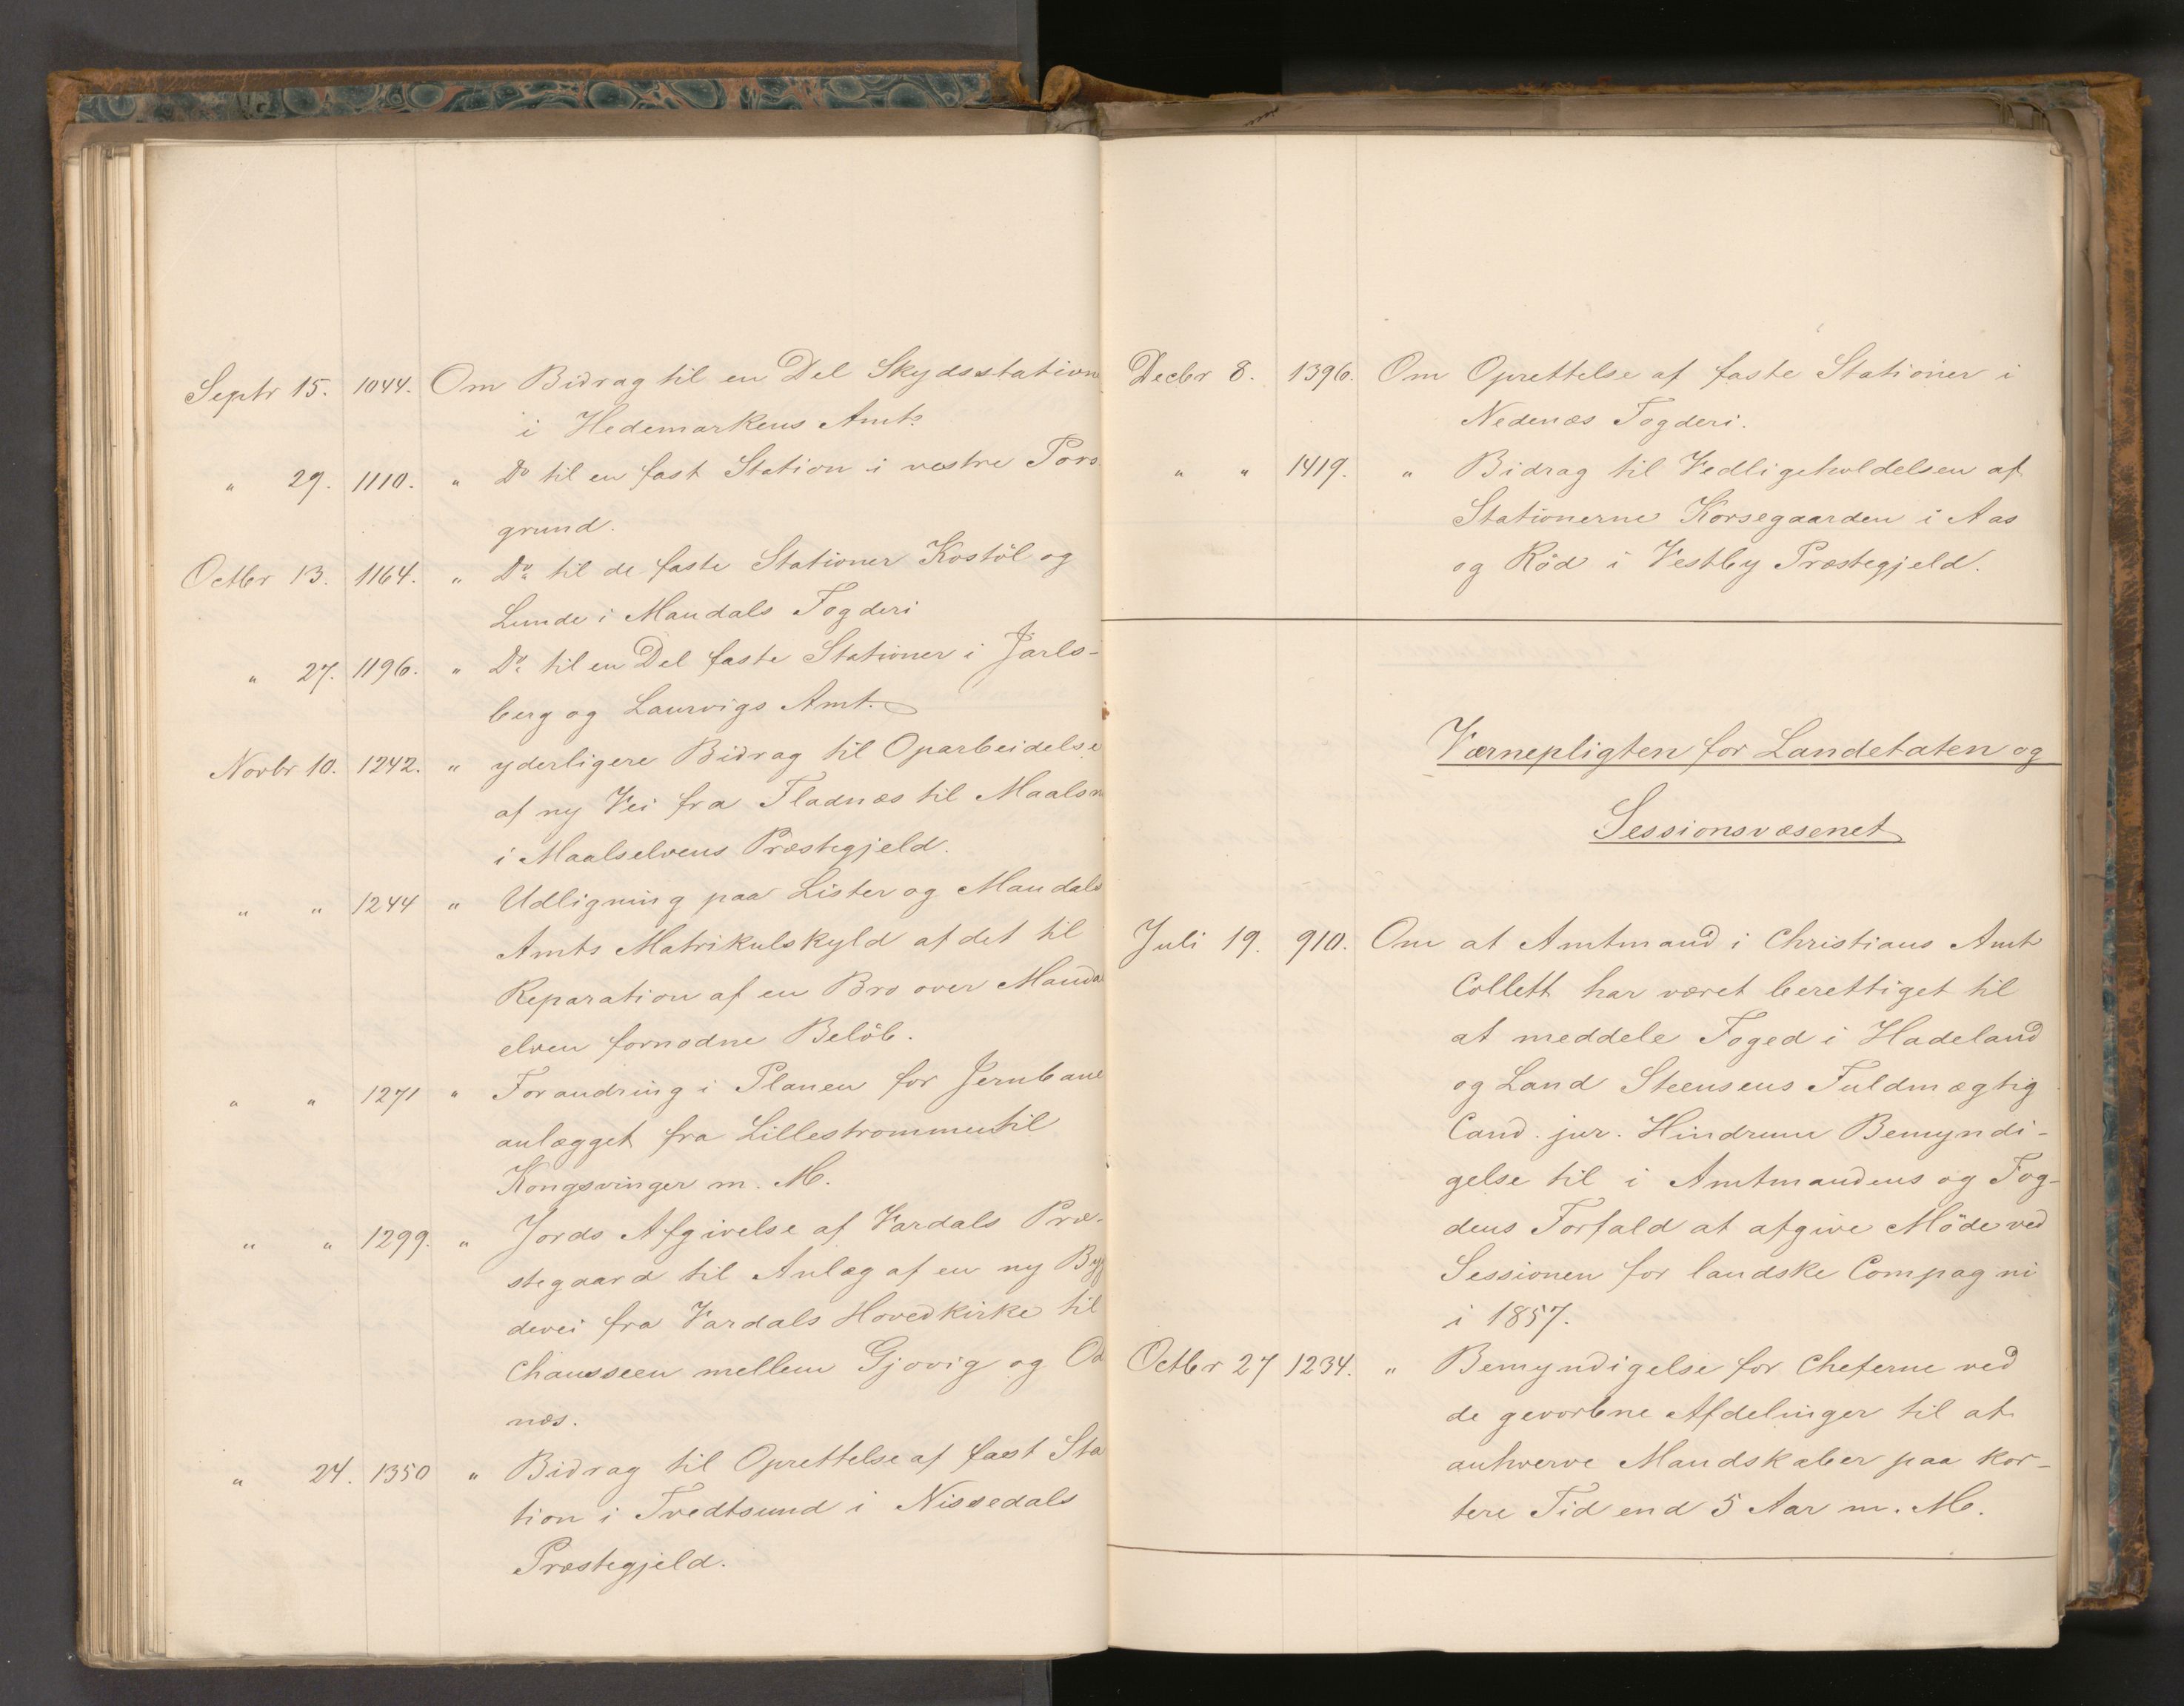 Septr 15. 1044. Om Bidrag til en Del Skydsstation
i Hedemarkens Amt.
" 29. 1110. " Do til en fast Station i vestre Pors
grund.
Octbr 13. 1164. " Do til de faste Stationer Kostöl og
Lunde i Mandals Fogderi
" 27. 1196. " Do til en Del faste Stationer i Jarls-
berg og Laurvigs Amt.
Novbr 10. 1242. " yderligere Bidrag til Oparbeidelse
af ny Vei fra Fladnæs til Maalsn
i Maalselvens Præstegjeld.
" " 1244 " Udligning paa Lister og Mandals
Amts Matrikulskyld af det til
Reparation af en Bro over Manda
elven fornødne Belöb.
" " 1271 " Forandring i Planen for Jernbane
anlægget fra Lillestrømmen til
Kongsvinger m. M.
" " 1299. " Jords Afgivelse af Vardals Præ-
stegaard til Anlæg af en ny Byg
devei fra Vardals Hovedkirke til
Chausseen mellem Gjøvig og Od
næs.
" 24. 1350 " Bidrag til Oprettelse af fast Sta
tion i Tvedtsund i Nissedals
Præstegjeld.
Decbr 8. 1396. Om Oprettelse af faste Stationer i
Nedenæs Fogderi.
" " 1419. " Bidrag til Vedligeholdelsen af
Stationerne Korsegaarden i Aas
og Röd i Vestby Præstegjeld.
Værnepligten for Landetaten og
Sessionsvæsenet
Juli 19. 910. Om at Amtmand i Christians Amt
Collett har været berettiget til
at meddele Foged i Hadeland
og Land Steensens Fuldmægtig
Cand. jur. Hindrum Bemyndi-
gelse til i Amtmandens og Fog-
dens Forfald at afgive Möde ved
Sessionen for landske Compagni
i 1857.
Octbr 27 1234. " Bemyndigelse for Cheferne ved
de gevorbne Afdelinger til at
anhverve Mandskaber paa kor-
tere Tid end 5 Aar m. M.